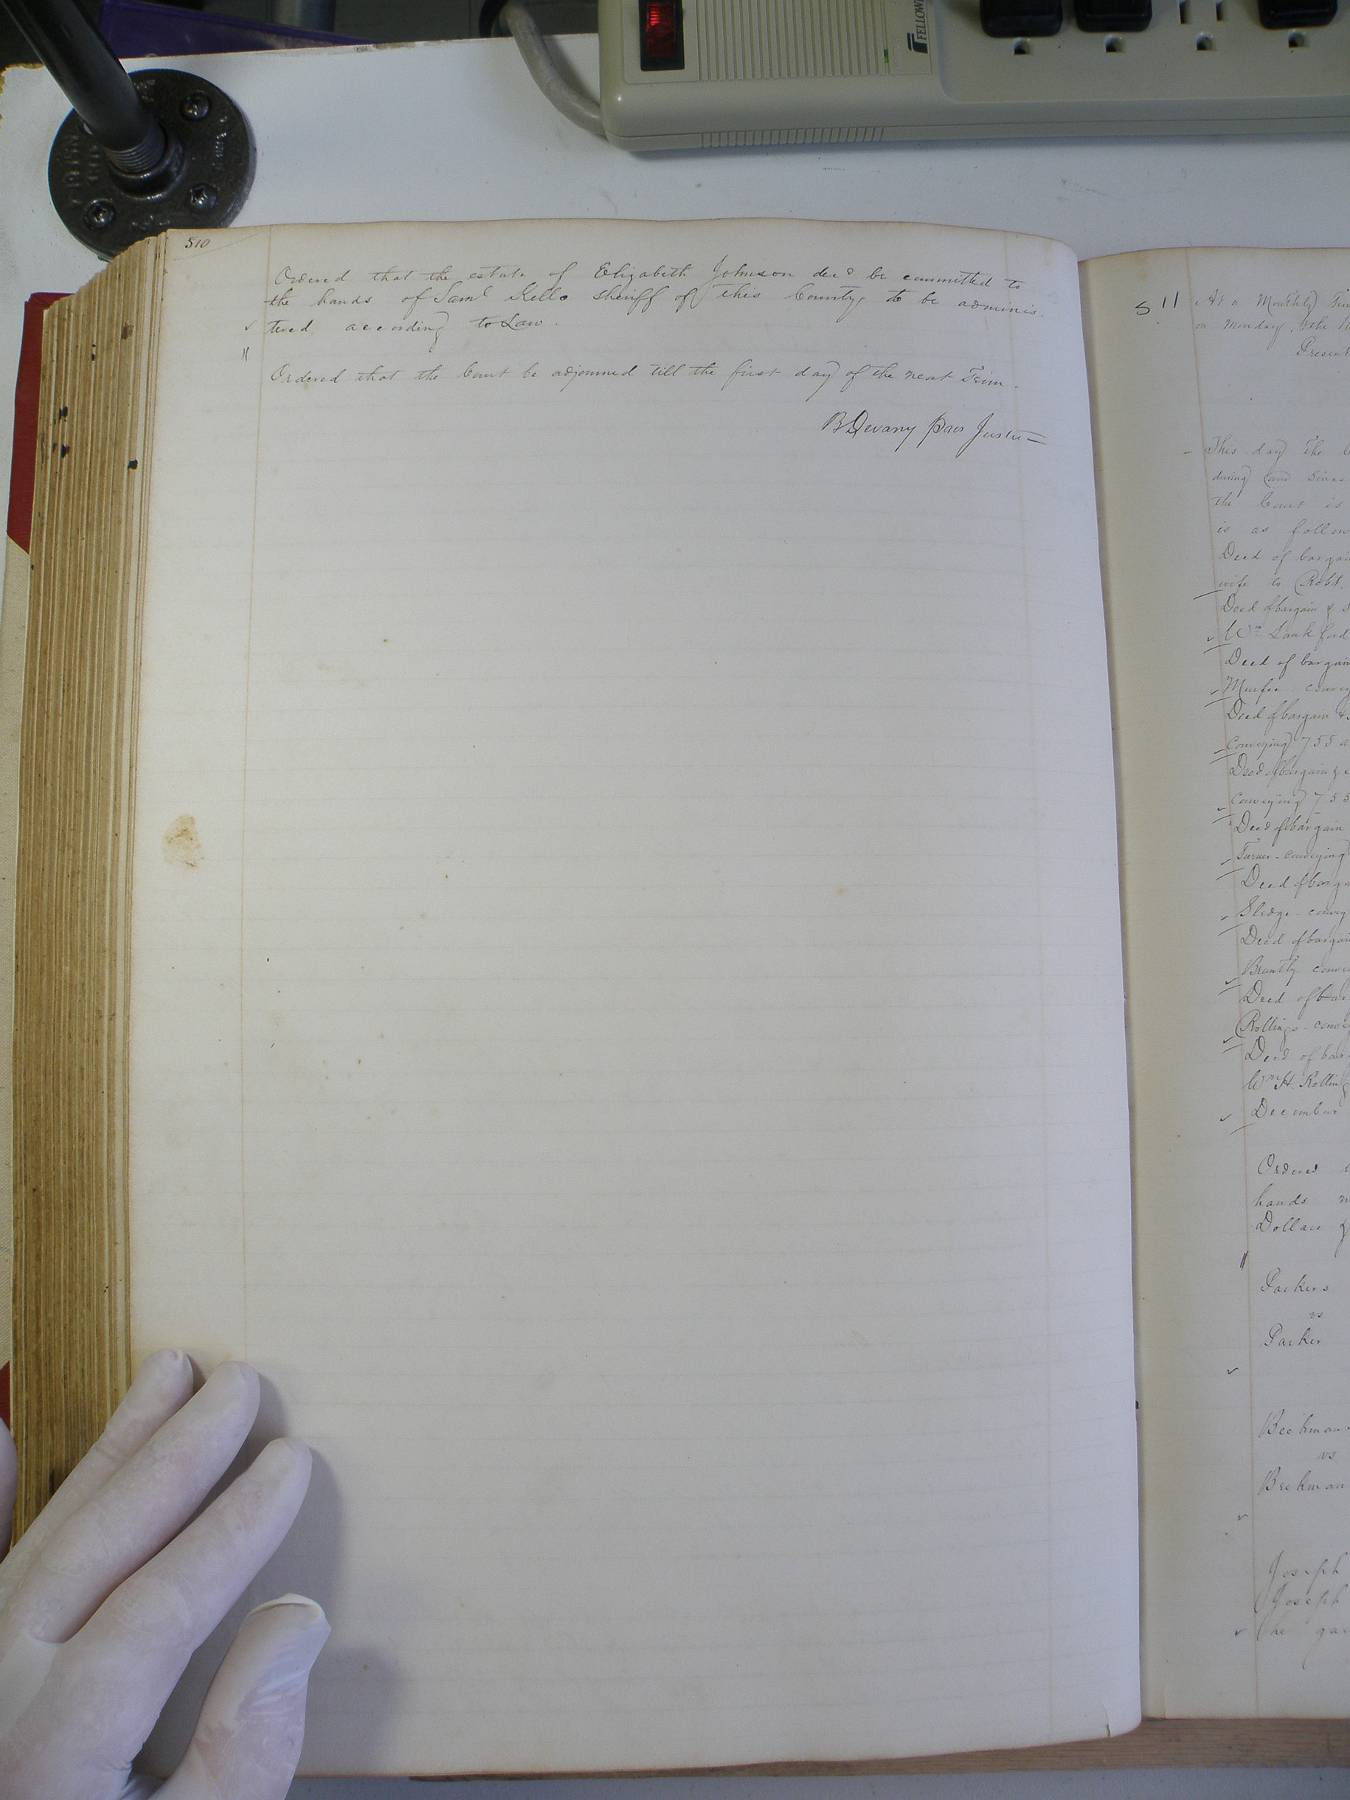 FELLOWES
510
Ordered that the estate of Elizabeth Johnson decd be committed to
the hands of Saml Kello sheriff of this County, to be adminis-
tered according to Law.
Ordered that the Court be adjourned till the first day of the next Term.
B Devany
511
At a Monthly
on Monday, the
Present
This day the
during and since
the Court is
is as follow
Deed of bargain
wife to Robt.
Deed of bargain &
Wm Lankford
Deed of bargain
Murfee convey
Deed of bargain &
Conveying 755 a
Deed of bargain &
Conveying 755
Deed of bargain
Turner - conveying
Deed of barga
Sledge - convey
Deed of bargain
Brantly conve
Deed of bar
Rollings - conve
Deed of bar
Wm H. Rolling
December
Ordered
hands
Dollars
Parkers
vs
Parker
Beckman
vs
Beckman
Joseph
Joseph
he